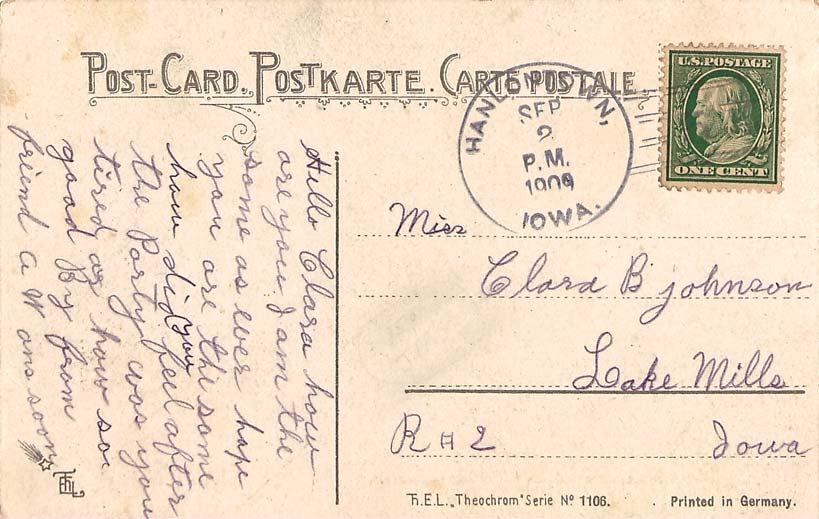 POST-CARD. POSTKARTE. CARTE POSTALE
U.S. POSTAGE
ONE CENT
SEP
2
P.M.
1909
IOWA.
Miss
Clara B johnson
Lake Mills
R # 2 Iowa
Hello Clara how
are you I am the
some as ever hope
you are the some
how did you feel after
the Party was you
tired or how so
good By from
friend a W
T.H.E.L. „Theochrom" Serie Nº 1106.
Printed in Germany.